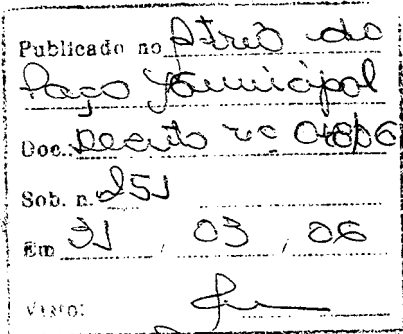 Publicado no Átrio do
Paço Municipal
Doc. Decreto nº 048/06
Sob. n. 251
Em 31 / 03 / 06
Visto: